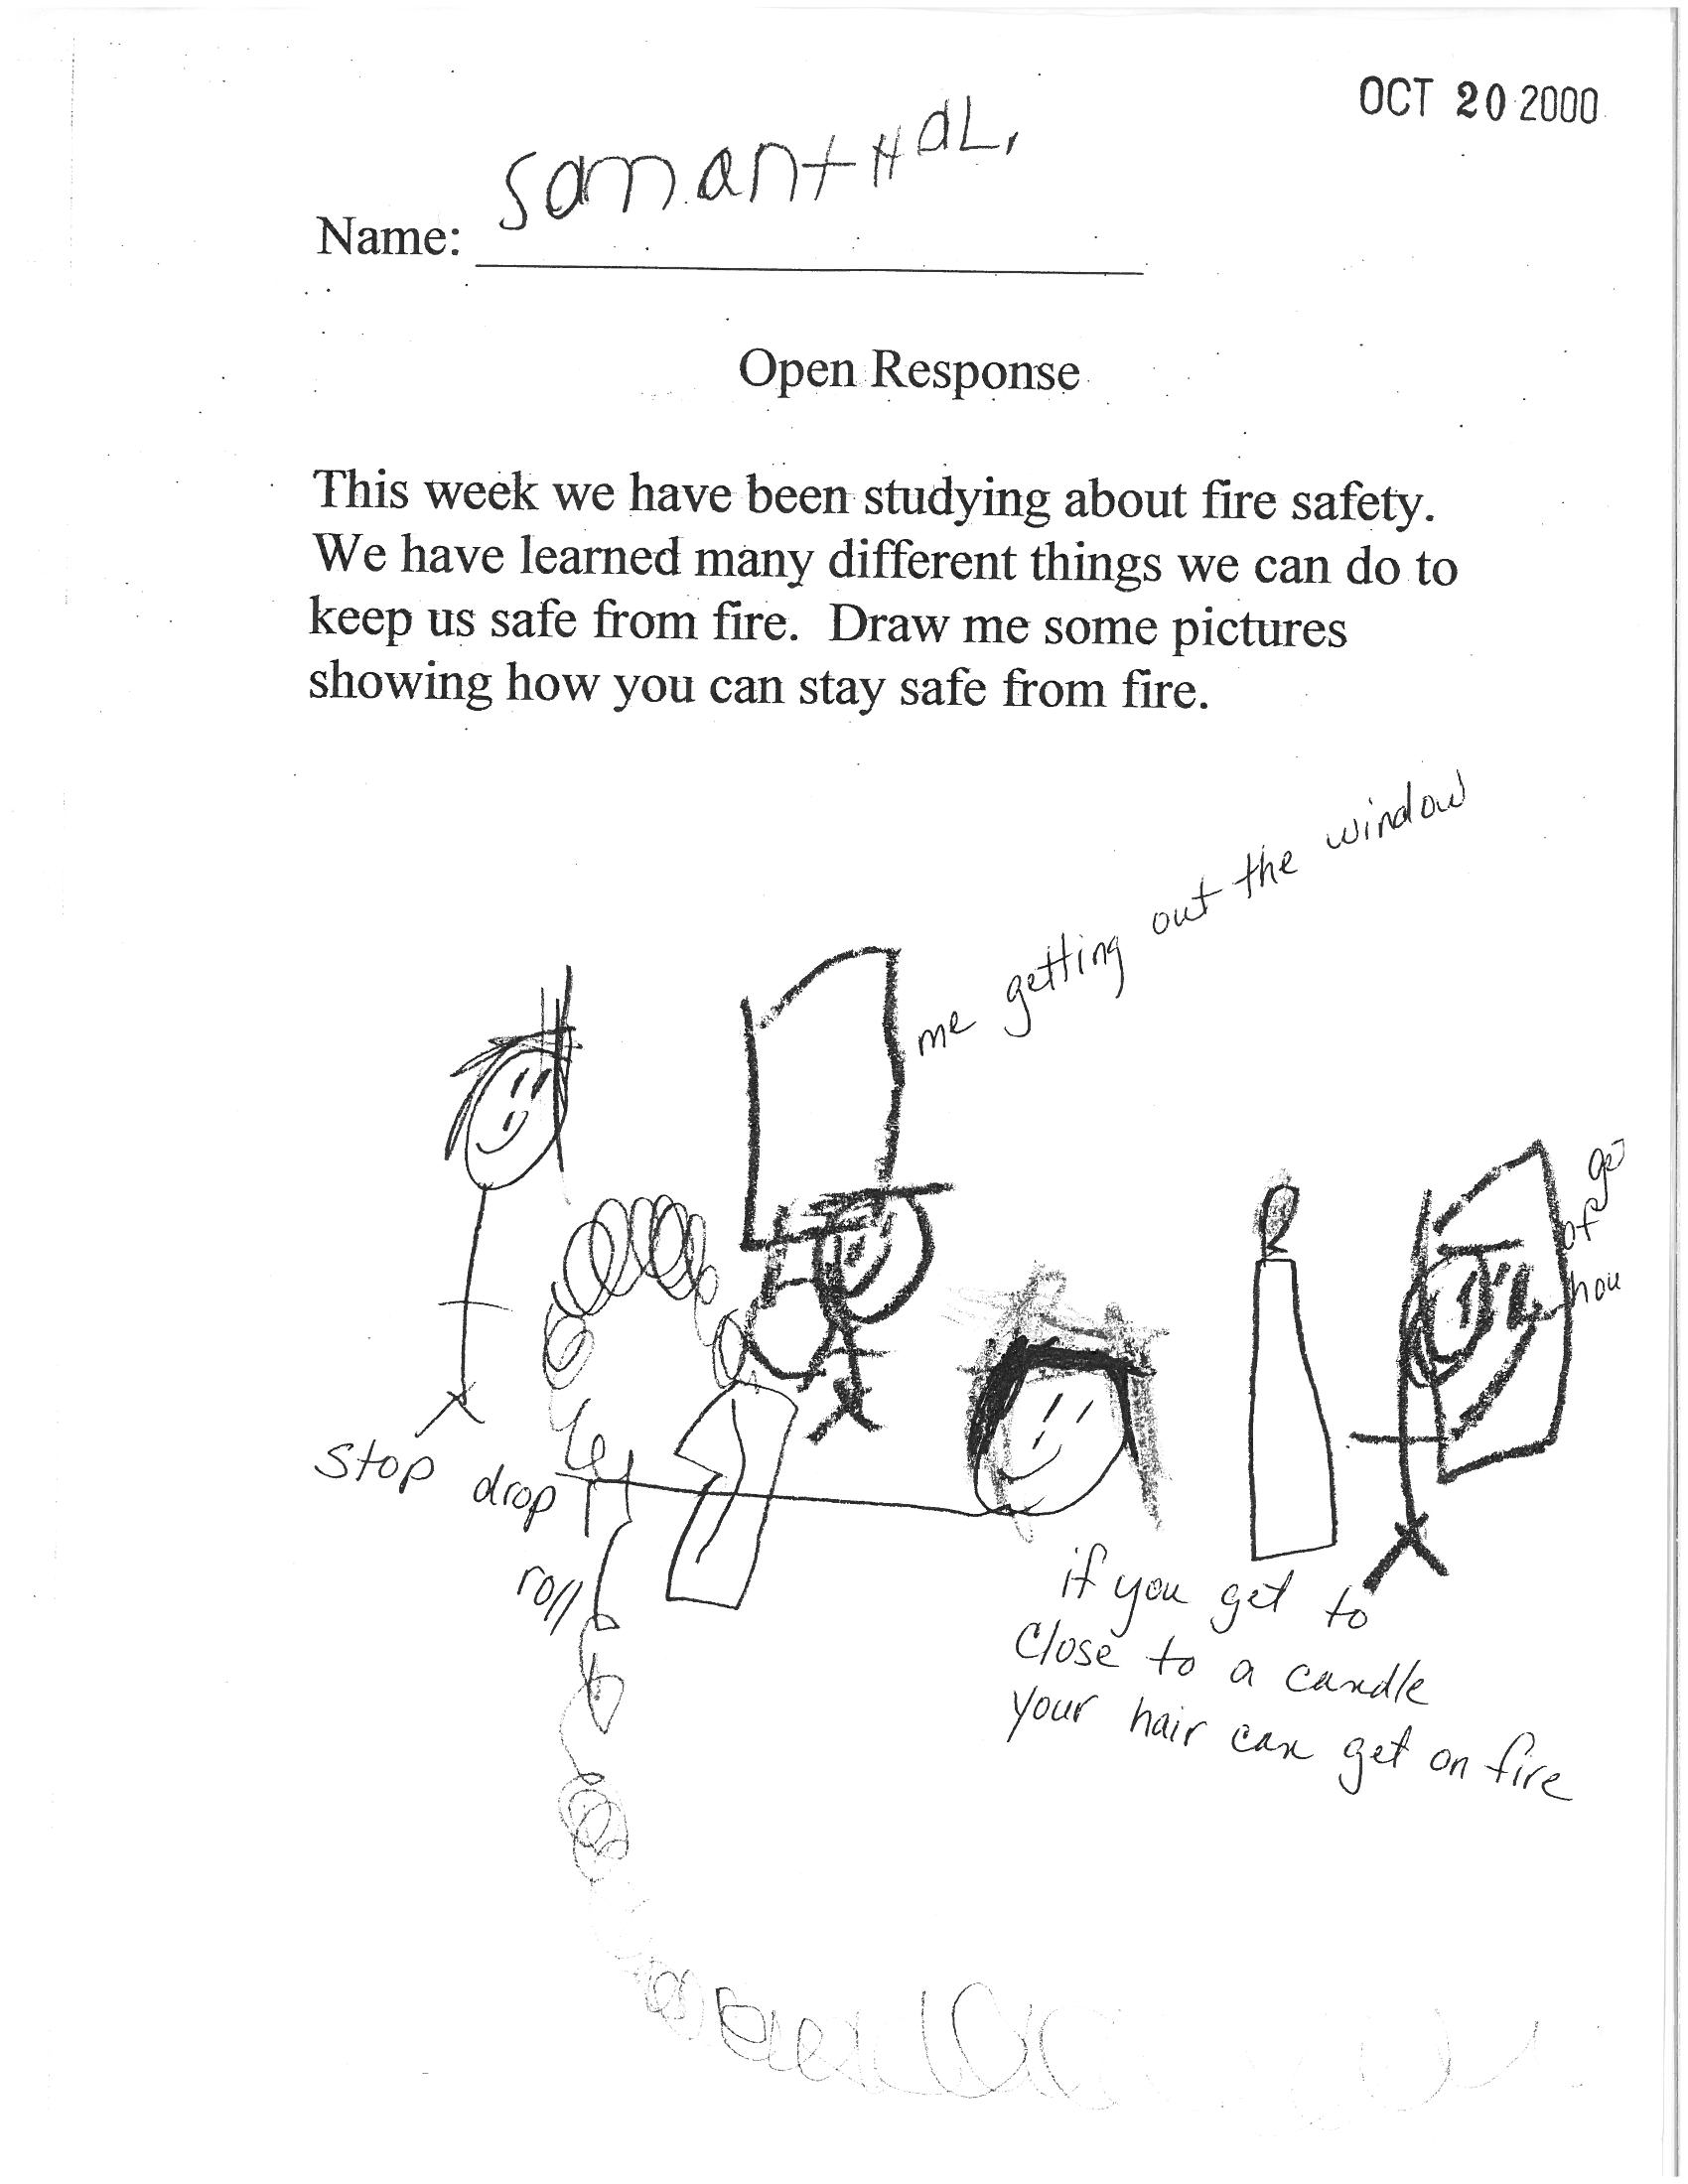 OCT 20 2000
SamantHa L.
Name:
Open Response
This week we have been studying about fire safety.
We have learned many different things we can do to
keep us safe from fire. Draw me some pictures
showing how you can stay safe from fire.
me getting out the window
ge
of
hou
stop drop
roll
if you get to
close to a candle
your hair can get on fire